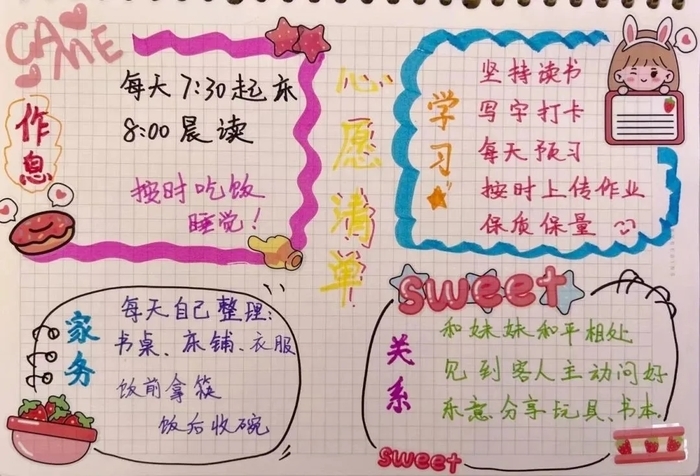 CA
ME
作息
每天7:30起床
8:00晨读
按时吃饭
睡觉！
心愿清单
学习
坚持读书
写字打卡
每天预习
按时上传作业
保质保量
家务
每天自己整理：
书桌、床铺、衣服
饭前拿筷
饭后收碗
sweet
关系
和妹妹和平相处
见到客人主动问好
乐意分享玩具、书本.
sweet